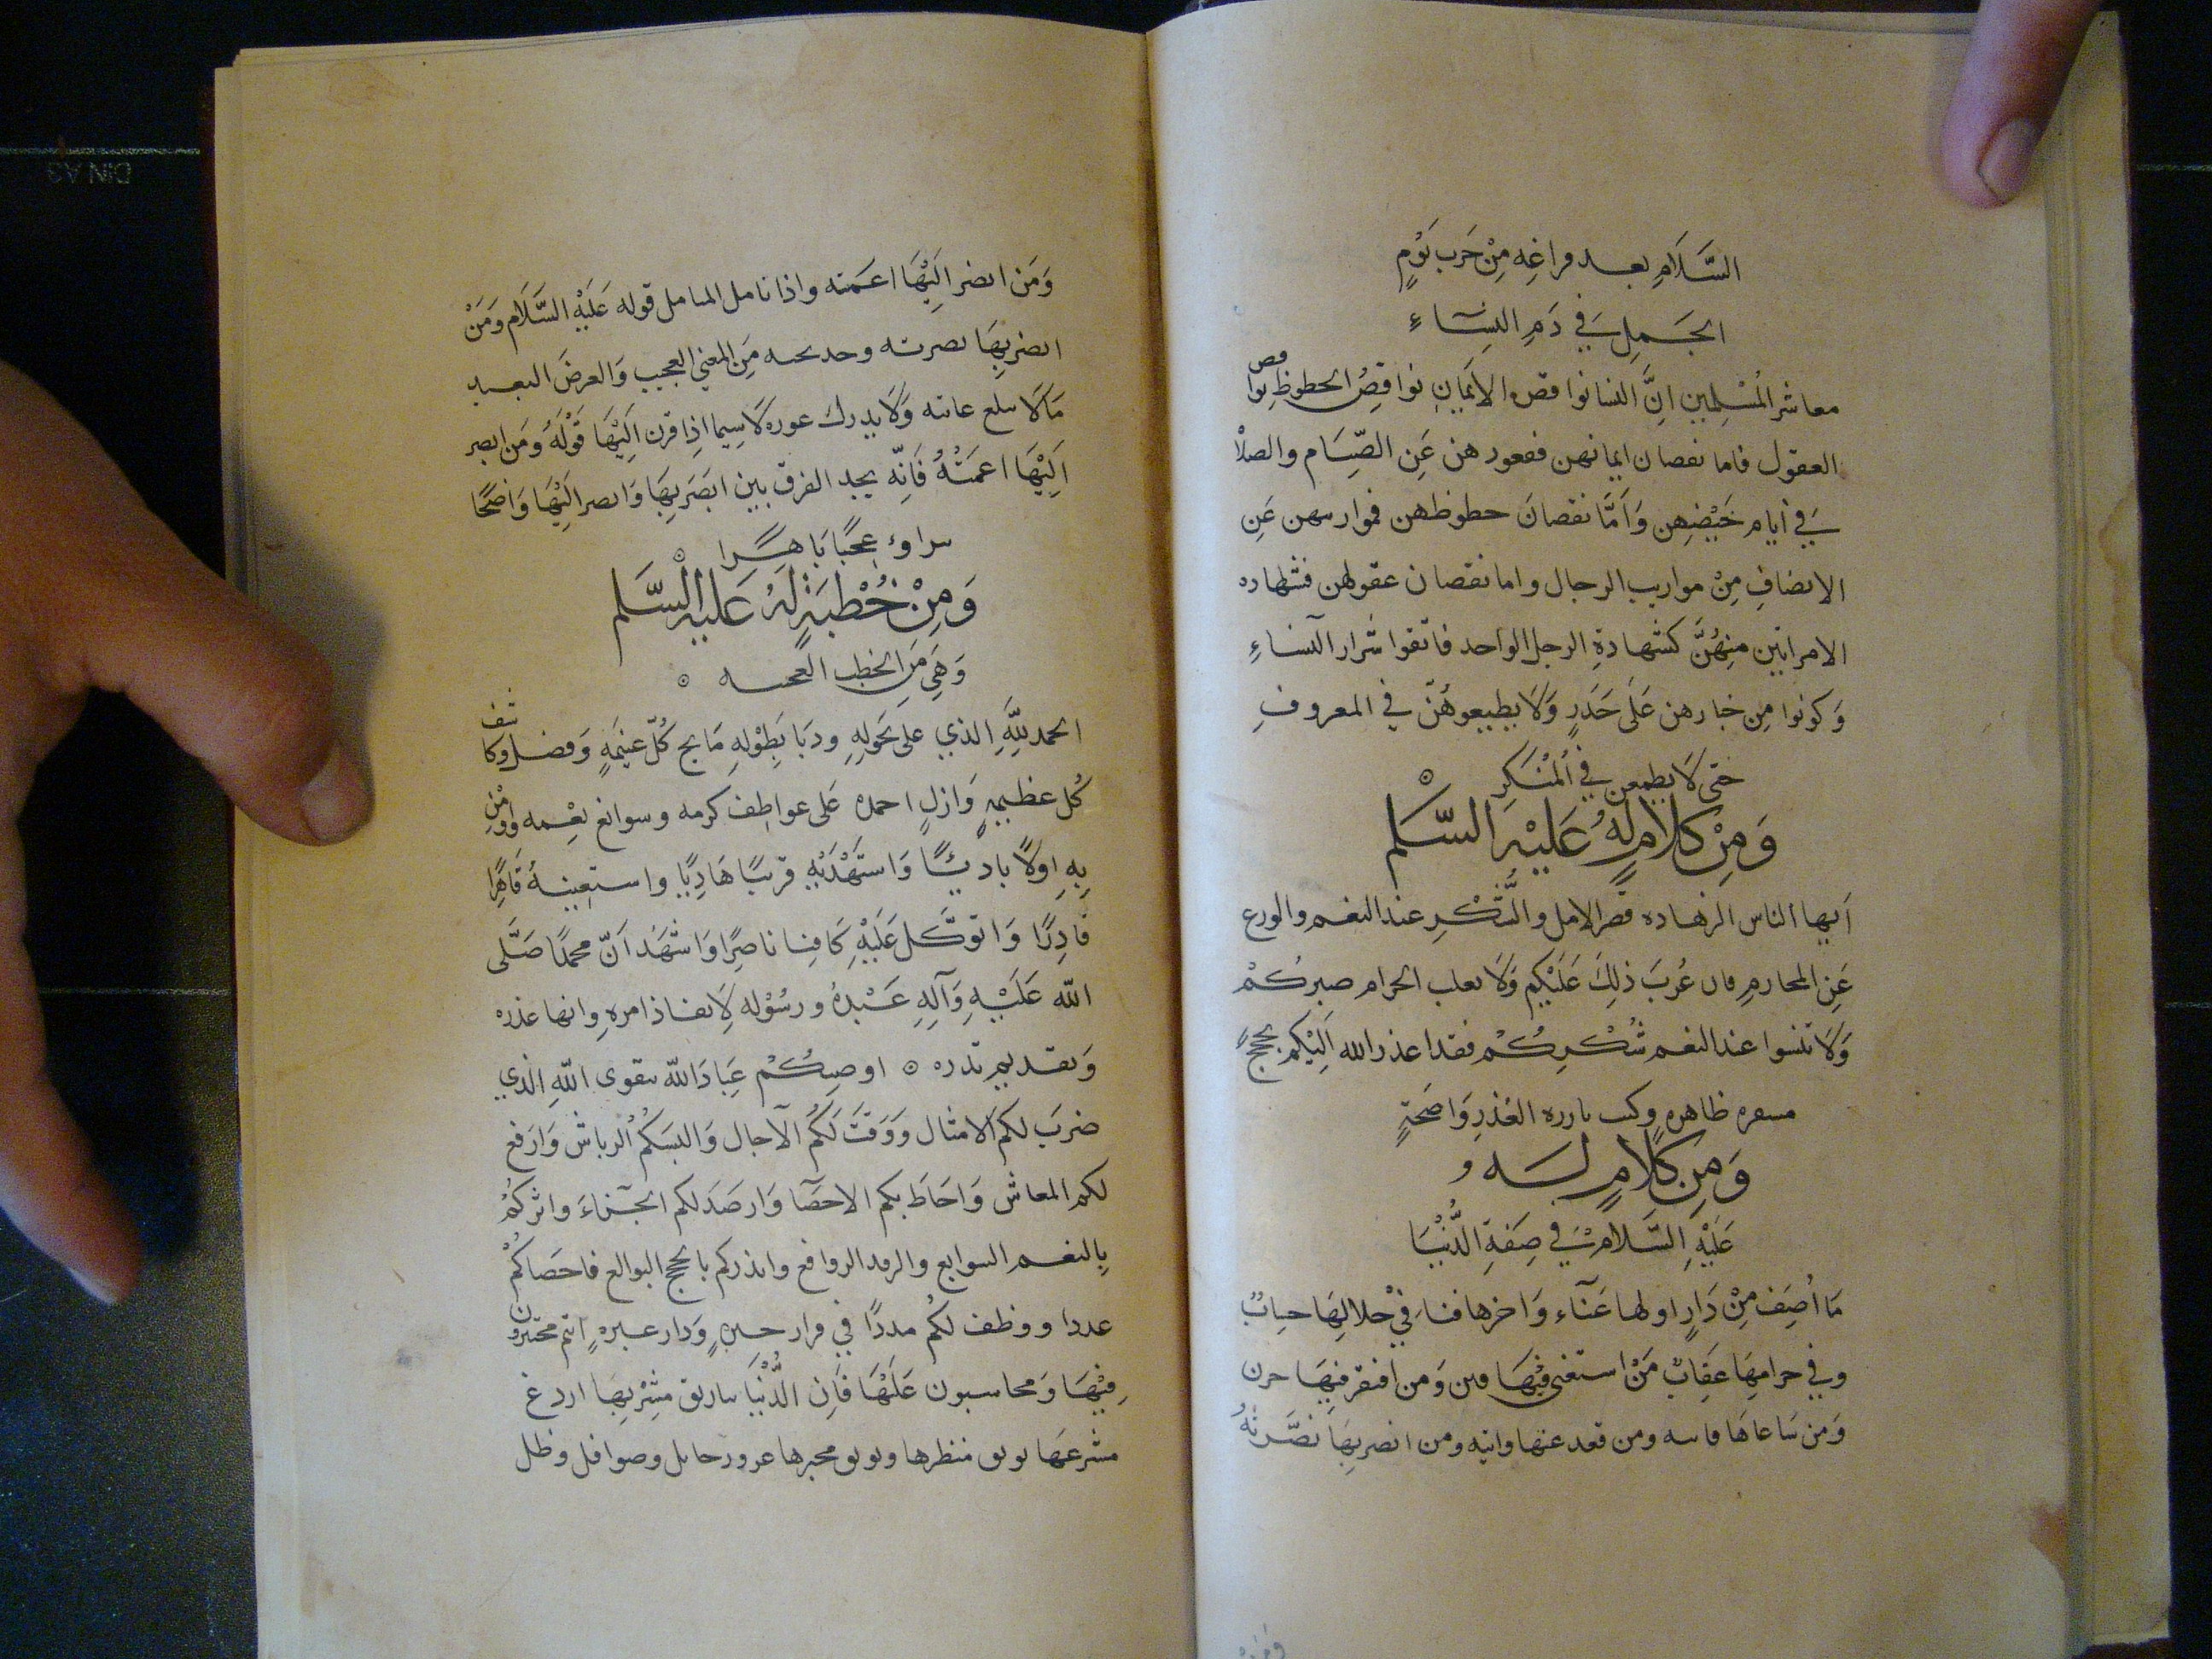 السَّلَامِ بعد فراغِهِ مِنْ حَرب يَوْمِ
الجَمل في ذَمِ النِسآءِ
معاشر المُسْلِمين اِنَّ النسا نواقص الاِيمَانِ نواقِصُ الحطوظِ نواقص
العقول فاما نقصان ايمانهن فقعودهن عَنِ الصِّيَام والصلاة
في أيام حَيْضِهِن وَاَمَّا نقصانَ حطوظهن فموارىىهن عَنِ
الانصافِ مِنْ موارىث الرجال واما نقصان عقولهن فشهاده
الامراتين منِهُنَّ كشهادةِ الرجل الواحد فاتقوا شرار النساءِ
وَكونوا مِن خيارهن عَلَى حَذَرٍ وَلَا تطيعوهُنّ في المعروفِ
حَتى لَا يطمعن في المُنْكَرِ
وَمِنْ كلامٍ لهُ عَليْهِ السَّلم
اَيها الناس الزهاده قصر الامل والشُّكْرِ عند النعم والورع
عَنِ المحارمِ فان عُزبَ ذلِكَ عَلَيْكُم وَلَا ىغلب الحرام صبركُمْ
وَلَا تنسوا عند النعم شُكْركُمْ فقد اعذر الله اِلَيْكُم بحججٍ
مسفره ظاهره وكتب بارزه العُذرِ وَاضحَةٍ
وَمِن كَلامٍ لَه
عَلَيْهِ السَّلامْ في صِفَةِ الدُّنْيَا
مَا أصِف مِنْ دَارٍ اولها عَنآء وَاخرها فنا في حْلالِهَا حساب
وفي حرامِهَا عِقاب مَنْ استغنى فيْهَا فىن وَمن افتقر فيهَا حزن
وَمن سَاعاهَا فاىىه ومن قعد عنها واتته ومن ابصر بِهَا بصَّرتهُ
وَمَن ابصر اِلَيْهَا اعمته واذا تامل المتامل قوله عَلَيْهِ السَّلَام وَمَنْ
ابصر بِهَا بصرته وجد تحته مِنَ المعني العجيب وَالغرضَ البعيد
مَا لَا ىىلغ غاىته وَلَا يدرك غوره لَا سِيما اذِا قرن اِلَيْهَا قَوْلَهُ وَمَن ابصر
اِلَيْهَا اعمَتْهُ فَاِنّه يجد الفرق بين ابْصَرَ بِهَا وَابصر اِلَيْهَا وَاضحًا
ىىراوء عجًبًا بَاهِرًا
وَمِنْ خُطْبَةٍ لهُ عَليهِ السَّلم
وَهَي مَنِ الخطب العجىىه
الحمد للَّهِ الذي على بحَولِهِ ودَنَا بَطِوْلِهِ مَانح كُلّ غنيمَةٍ وَفضل وكاشف
كُل عظيمةٍ وَازلٍ احمده عَلى عواطِف كرمه وسوابغ نِعمه واومْن
بِهِ اولًا باديًا وَاستَهْديْهِ قريبًا هَادِيًا واستعِينهُ قاهِرًا
قادِرًا وَاتوَّكل عَلَيْهِ كَافيًا ناصِرًا وَاشهَد اَنّ محمدًا صَلَّى
اللّه عَلَيْهِ وَآلِهِ عَبْدُهُ ورسُوْله لِانفاذ امره وانها عذره
وَتقديم نذره اوصِيكُمْ عِبَادَ اللّه بتقوى اللّهِ الذي
ضربَ لكم الامثال وَوَقتَ لَكُم الآجال وَالبسَكُمُ الرياش وَارفع
لكم المعاش وَاحَاطَ بكم الاحصَا وَارصَدَ لكم الجزاءَ واثركُمْ
بِالنعم السوابغ والرفد الروافع وانذركم بالحجج البوالغ فاحصَاكُمْ
عددا ووظف لكُم مددًا في قرار خبرهٍ وَدار عبرهٍ انتم مختبرون
فِيْهَا وَمحاسبون عَلَيْهَا فَاِن الدُّنْيَا ىىارىق مَشِرْبِهَا اردغ
مشرعهَا ىوىق منظرها وىوىق مخبرها غرور حاىل وضوافل وظل